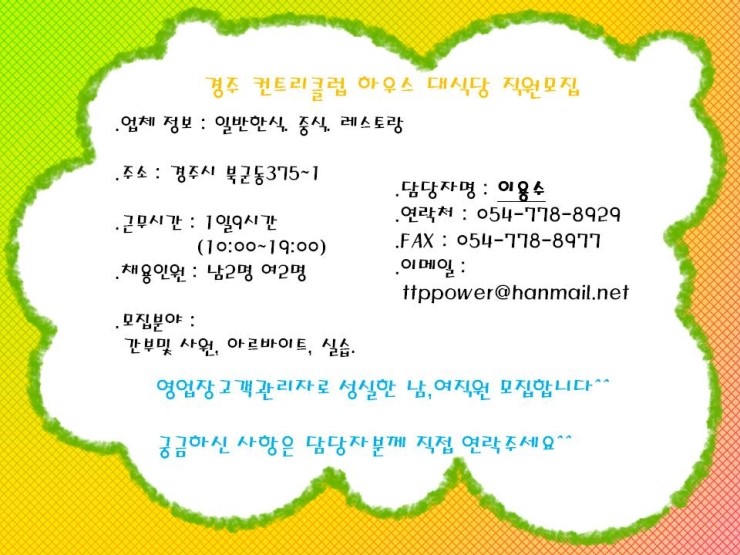 경주 컨트리클럽 하우스 대식당 직원모집
.업체 정보 : 일반한식. 중식. 레스토랑
.주소 : 경주시 북군동375~1
.근무시간 : 1일9시간
(10:00~19:00)
.채용인원 : 남2명 여2명
.모집분야 :
간부및 사원, 아르바이트, 실습.
.담당자명 : 이용수
.연락처 : 054-778-8929
.FAX : 054-778-8977
.이메일 :
ttppower@hanmail.net
영업장고객관리자로 성실한 남,여직원 모집합니다^^
궁금하신 사항은 담당자분께 직접 연락주세요^^